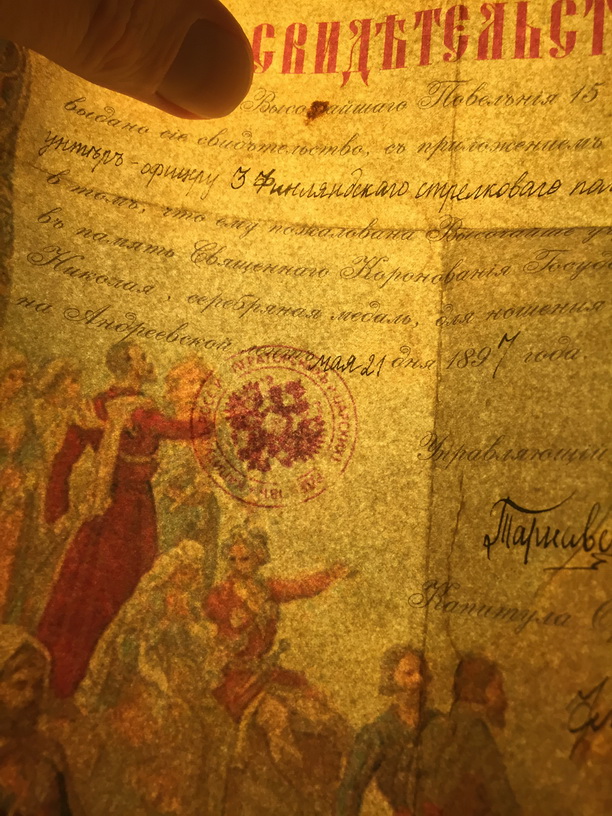 СВИДѢТЕЛЬСТ
Высочайшаго Повелѣнія 15
выдано сіе свидѣтельство, съ приложеніемъ
унтеръ-офицеру 3 Финляндскаго стрелковаго пол
в томъ, что ему пожалована Высочайше у
въ память Священнаго Коронованія Госуда
Николая, серебряная медаль, для ношенія
на Андреевской мая 21 дня 1897 года.
Управляющій
Капитула